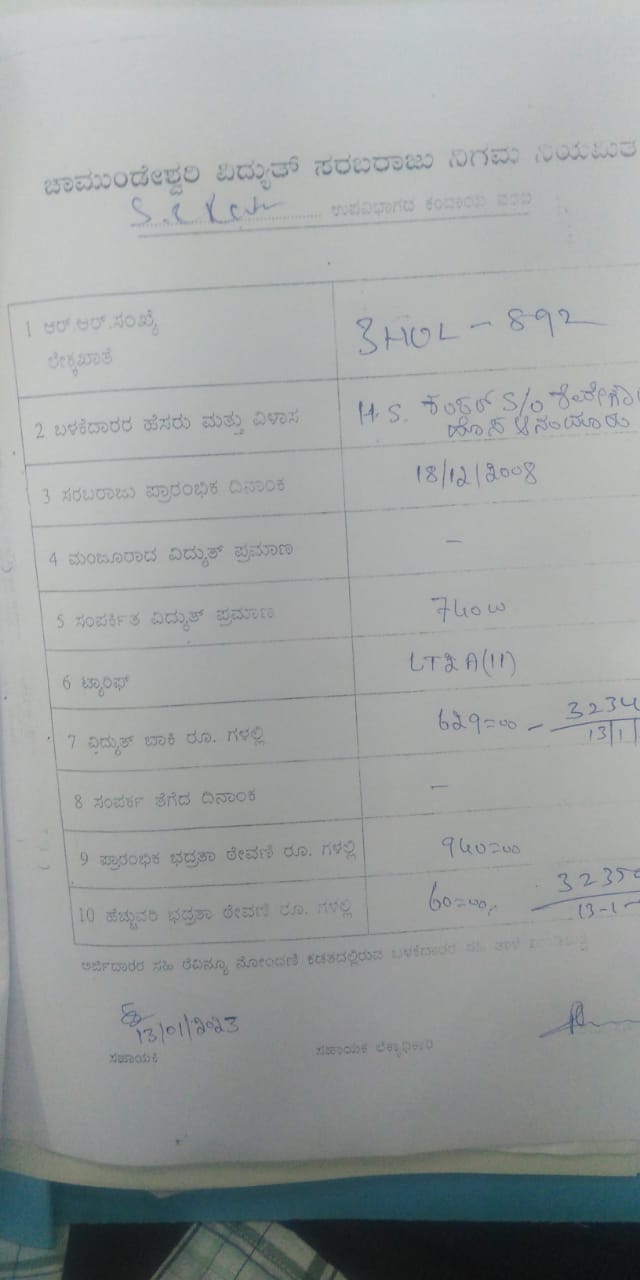 ಚಾಮುಂಡೇಶ್ವರಿ ವಿದ್ಯುತ್ ಸರಬರಾಜು ನಿಗಮ ನಿಯಮಿತ
ಉಪವಿಭಾಗದ ಕಂದಾಯ
1 ಆರ್.ಆರ್.ಸಂಖ್ಯೆ
ಲೆಕ್ಕಖಾತೆ
3HOL - 892
2 ಬಳಕೆದಾರರ ಹೆಸರು ಮತ್ತು ವಿಳಾಸ
H.S. ಶಂಕರ್ S/o
3 ಸರಬರಾಜು ಪ್ರಾರಂಭಿಕ ದಿನಾಂಕ
18/12/2008
4 ಮಂಜೂರಾದ ವಿದ್ಯುತ್ ಪ್ರಮಾಣ
–
5 ಸಂಪರ್ಕಿತ ವಿದ್ಯುತ್ ಪ್ರಮಾಣ
740w
6 ಟ್ಯಾರಿಫ್
LT2A(11)
7 ವಿದ್ಯುತ್ ಬಾಕಿ ರೂ. ಗಳಲ್ಲಿ
629=00 – 3234
13/1/
8 ಸಂಪರ್ಕ ತೆಗೆದ ದಿನಾಂಕ
–
9 ಪ್ರಾರಂಭಿಕ ಭದ್ರತಾ ಠೇವಣಿ ರೂ. ಗಳಲ್ಲಿ
940=00
10 ಹೆಚ್ಚುವರಿ ಭದ್ರತಾ ಠೇವಣಿ ರೂ. ಗಳಲ್ಲಿ
60=00 3235
13-1-
ಅರ್ಜಿದಾರರ ಸಹಿ ರೆವಿನ್ಯೂ ನೋಂದಣಿ ಕಡತದಲ್ಲಿರುವ ಬಳಕೆದಾರರ ಸಹಿ
13/01/2023
ಸಹಾಯಕ ಸಹಾಯಕ ಲೆಕ್ಕಾಧಿಕಾರಿ